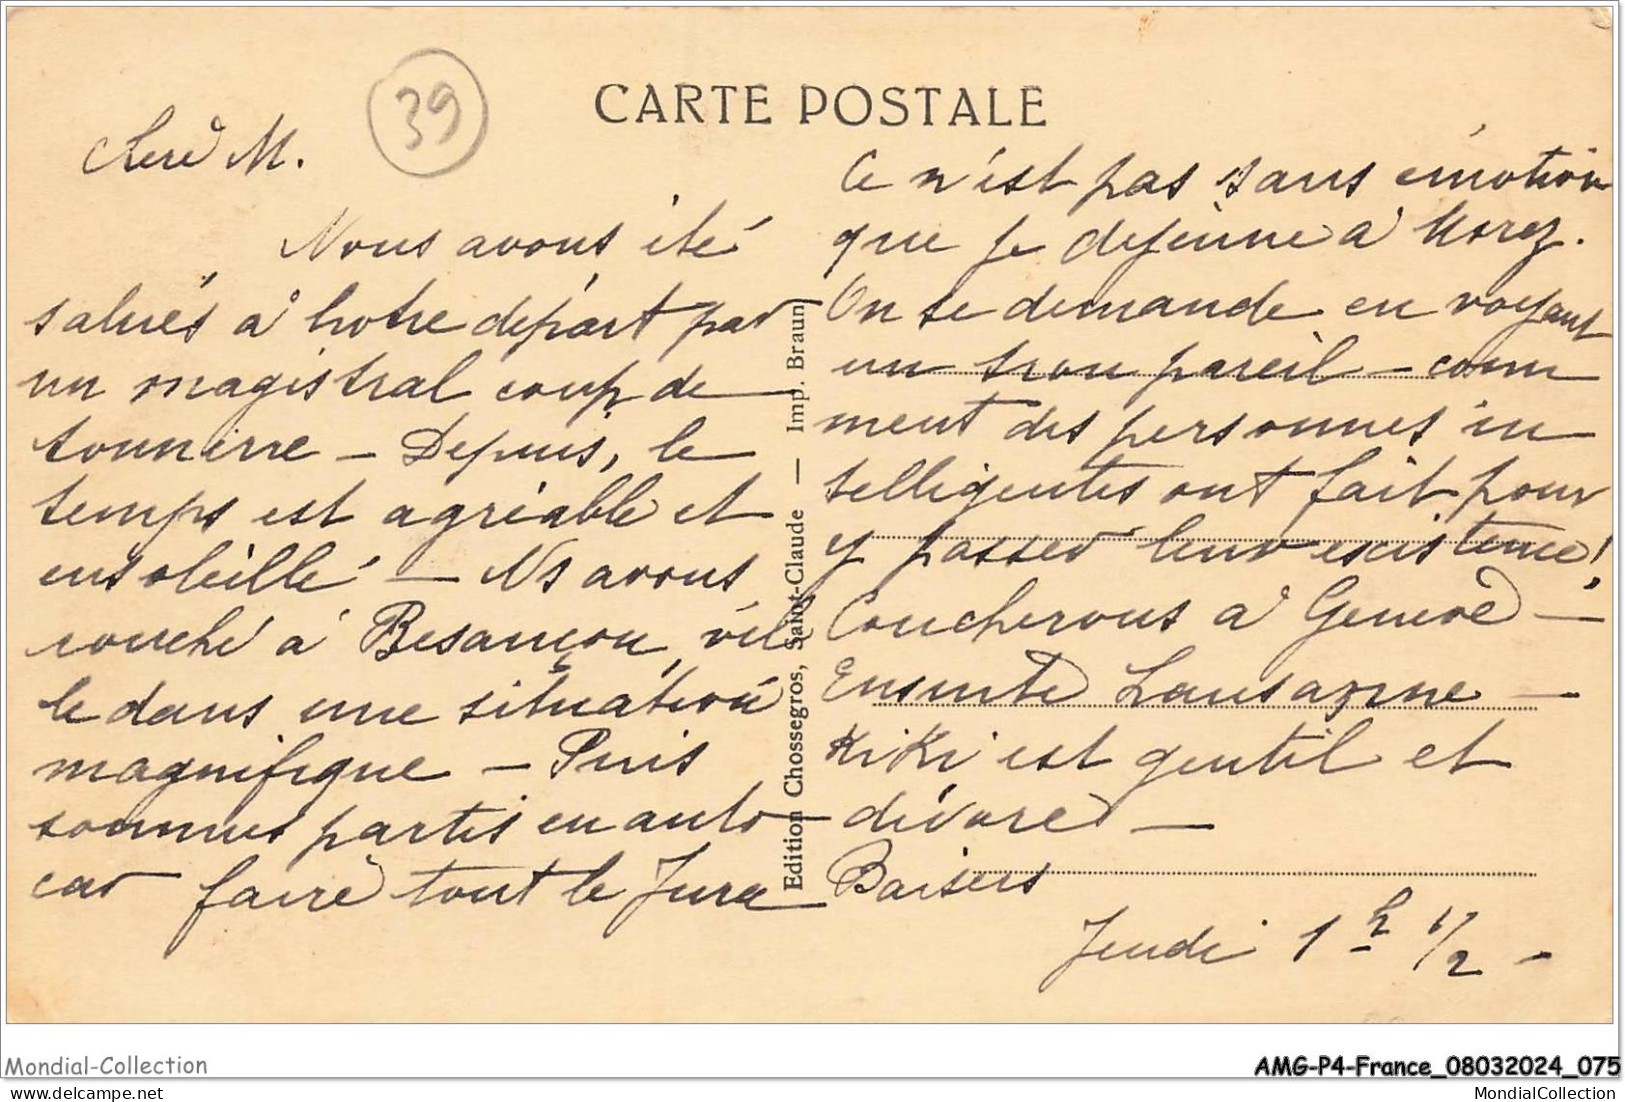 CARTE POSTALE
39
Chere M.
Nous avons été
salués à notre départ par
un magistral coup de
tonnerre – Depuis, le
temps est agréable et
ensoleillé – Ns avons
couché à Besançon, vil
le dans une situation
magnifique – Puis
sommes partis en auto
car faire tout le Jura
Edition Chossegros, Saint-Claude — Imp. Braun
Ce n'est pas sans émotion
que je dejeune à Morez.
On se demande en voyant
un trou pareil – com
ment des personnes in
telligentes ont fait pour
y passer leur existence!
Coucherons à Genève –
Ensuite Lausanne –
Kiki est gentil et
dévore –
Baisers
Jeudi 1h 1/2 –
Mondial-Collection
AMG-P4-France_08032024_075
the best of collections since 1902
MondialCollection